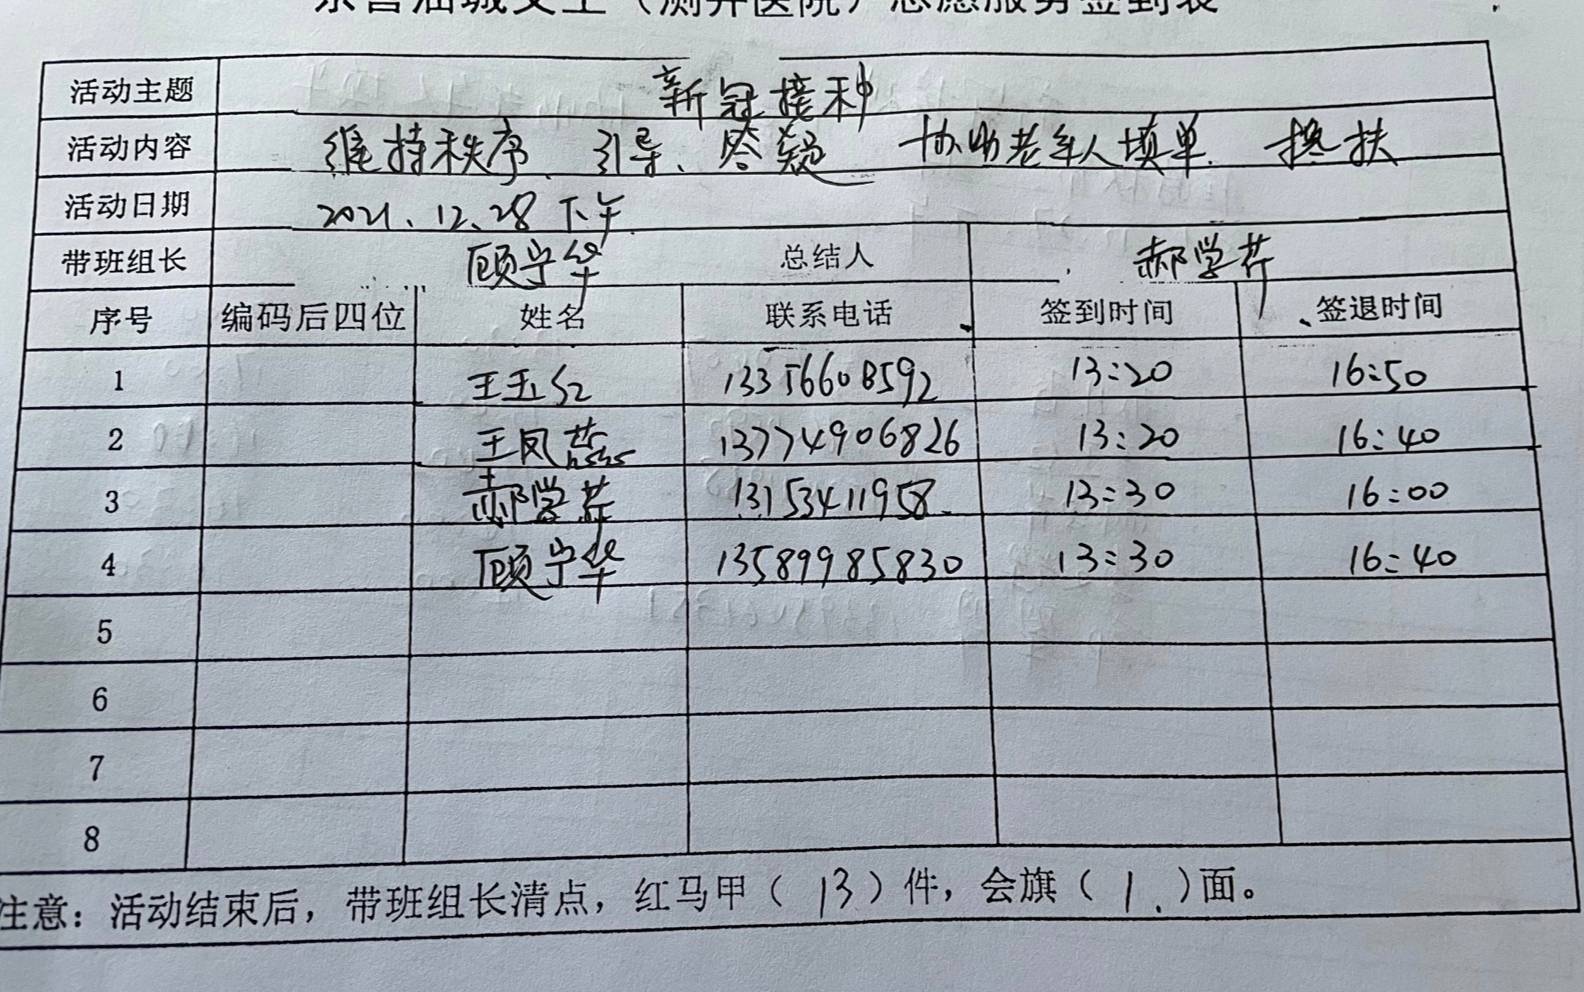 东营油城义工（测井医院）志愿服务签到表
活动主题 新冠接种
活动内容 维持秩序、引导、答疑 协助老年人填单、搀扶
活动日期 2021、12、28 下午
带班组长 顾宁华 总结人 郝学芹
序号 编码后四位 姓名 联系电话 签到时间 签退时间
1 王玉红 13356608592 13:20 16:50
2 王凤燕 13774906826 13:20 16:40
3 郝学芹 13153411958 13:30 16:00
4 顾宁华 13589985830 13:30 16:40
5
6
7
8
注意：活动结束后，带班组长清点，红马甲（13）件，会旗（1）面。